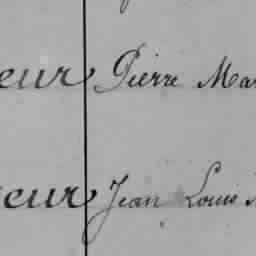 eur Pierre Mar
eur Jean Louis